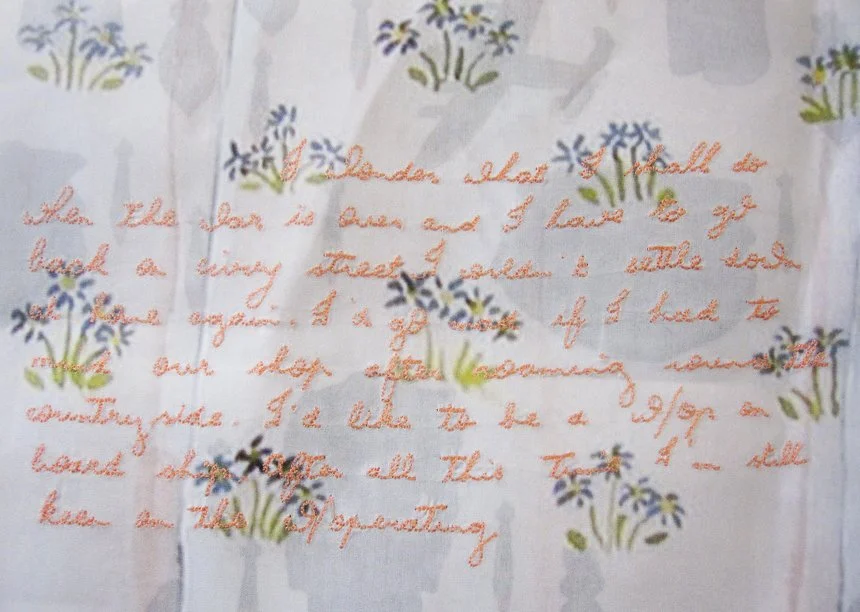 I Wonder what I shall do
when the War is Over and I have to go
back on civvy street I couldn't settle down
at home again. I'd go if I had to
mind our shop after roaming round the
countryside. I'd like to be a W/Op on
board ship. After all this time I'm still
keen on the W/operating